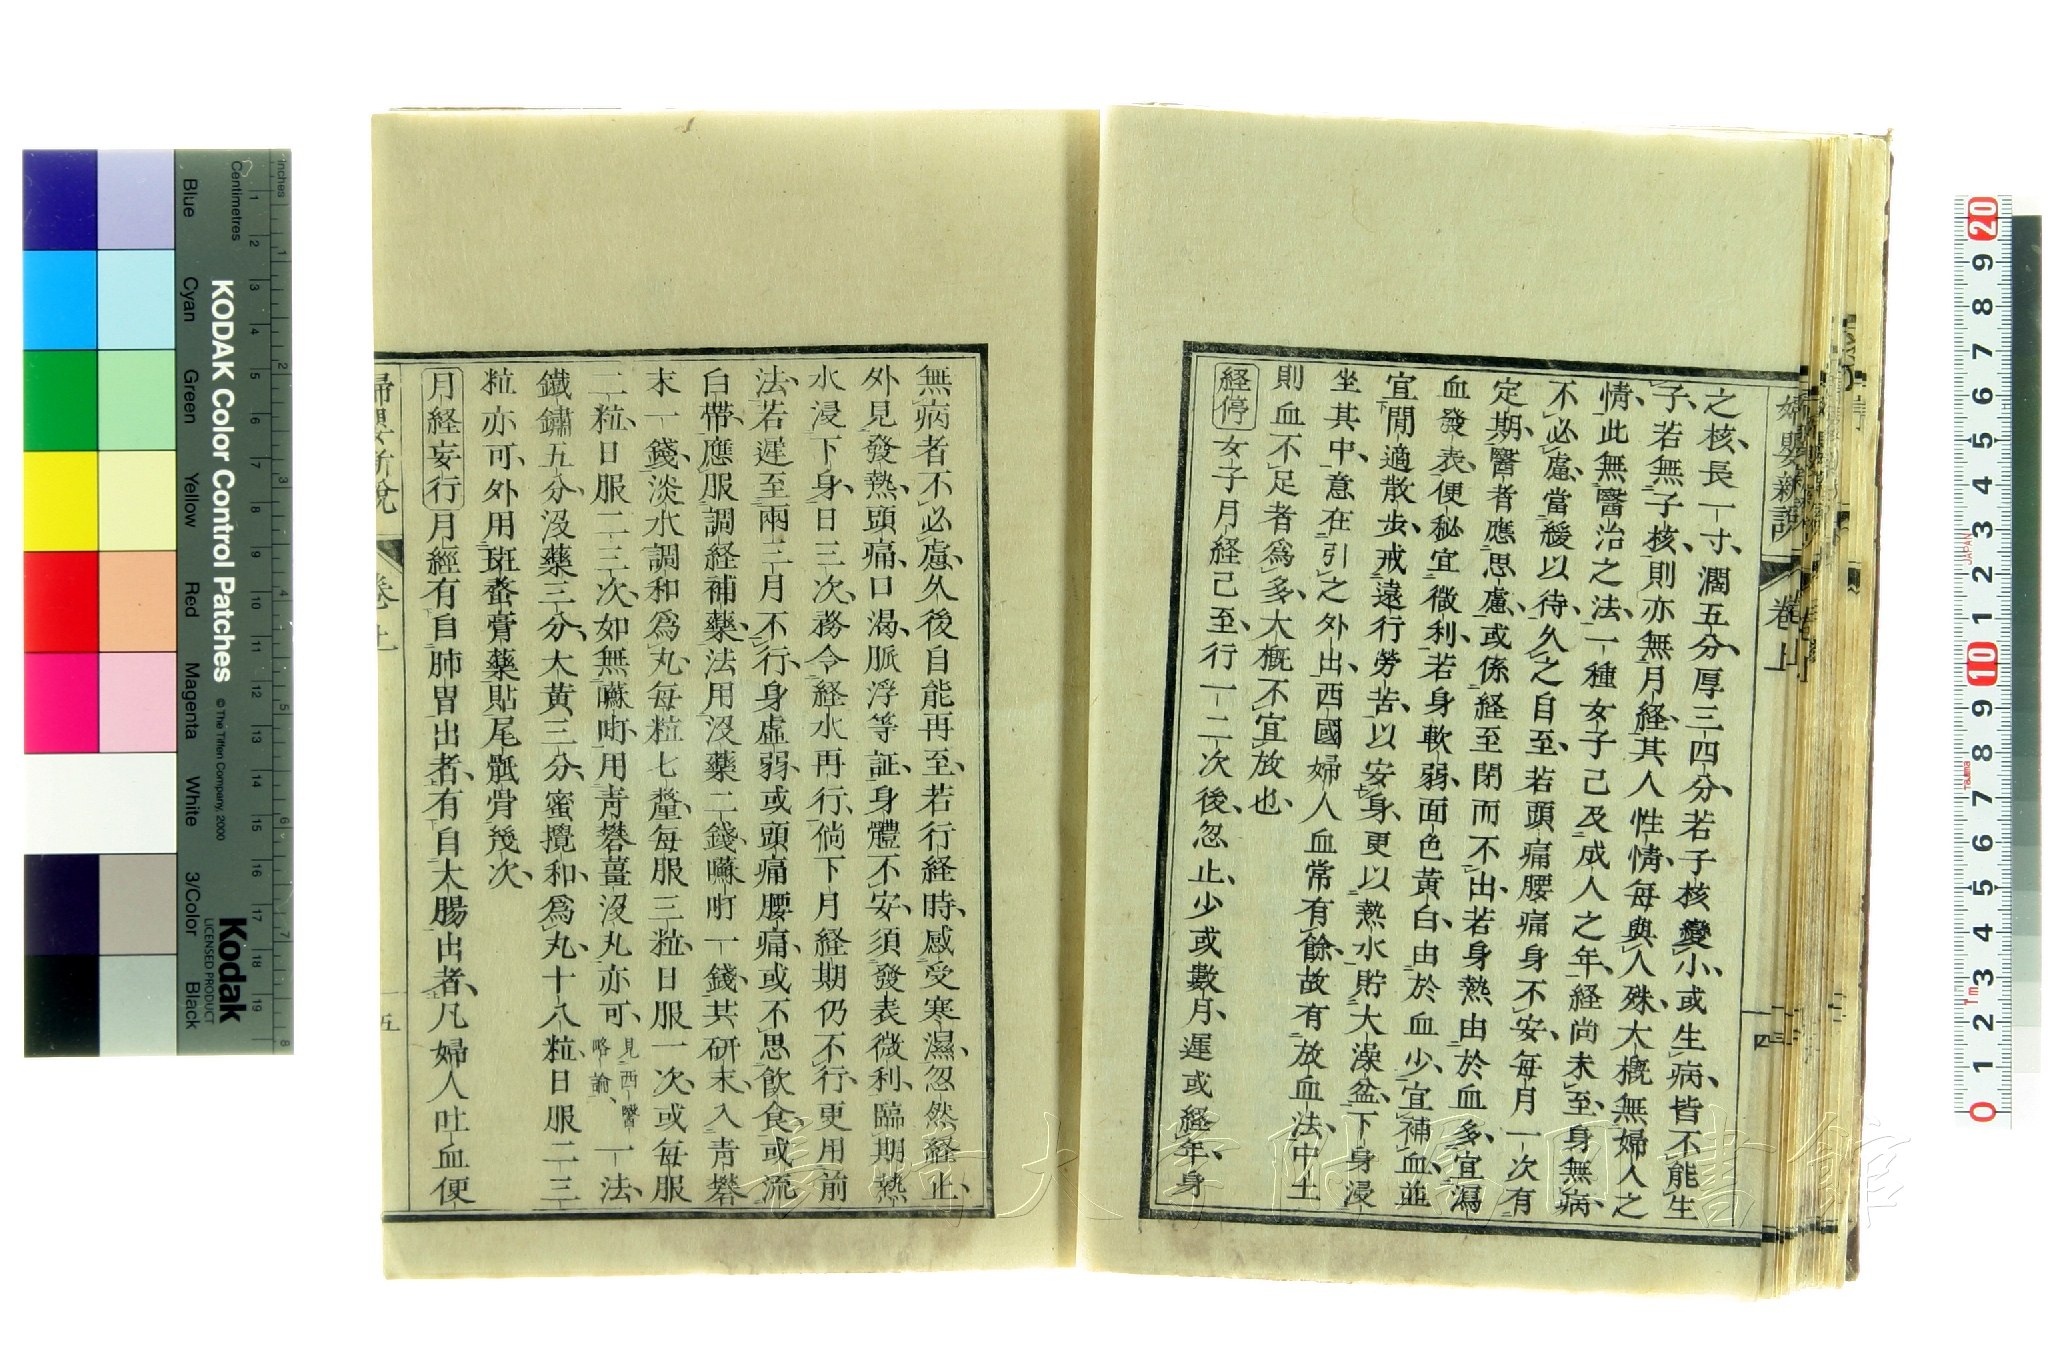 婦嬰新說
卷上
四
之核、長一寸、濶五分、厚三四分、若子核變小、或生病、皆不能生
子、若無子核、則亦無月経、其人性情每與人殊、大概無婦人之
情、此無醫治之法、一種女子已及成人之年、経尚未至、身無病、
不必慮、當緩以待久之自至、若頭痛腰痛身不安、每月一次有
定期、醫者應思慮、或係経至閉而不出、若身熱由於血多、宜瀉
血發表、便秘宜微利、若身軟弱、面色黃白、由於血少、宜補血、並
宜閒適散步、戒遠行勞苦、以安身、更以熱水貯大澡盆、下身浸
坐其中、意在引之外出、西國婦人血常有餘、故有放血法、中土
則血不足者為多、大概不宜放也、
経停 女子月経已至、行一二次後、忽止、少或數月、遲或経年、身
無病者不必慮、久後自能再至、若行経時、感受寒濕、忽然経止、
外見發熱、頭痛、口渴、脈浮等証、身體不安、須發表微利、臨期熱
水浸下身、日三次、務令経水再行、倘下月経期仍不行、更用前
法、若遲至兩三月不行、身虛弱、或頭痛腰痛、或不思飲食、或流
白帶、應服調経補藥、法用沒藥二錢、囌㕶一錢、共研末、入青礬
末一錢、淡水調和為丸、每粒七釐、每服三粒、日服一次、或每服
二粒、日服二三次、如無囌㕶、用青礬薑沒丸亦可、見西醫略論、一法、
鐵鏽五分、沒藥三分、大黃三分、蜜攪和為丸、十八粒、日服二三
粒亦可、外用斑蝥膏藥貼尾骶骨幾次、
月経妄行 月經有自肺胃出者、有自大腸出者、凡婦人吐血便
婦嬰新說
卷上
五
KODAK Color Control Patches
© The Tiffen Company, 2000
Kodak
LICENSED PRODUCT
inches
Centimetres
Blue
Cyan
Green
Yellow
Red
Magenta
White
3/Color
Black
長崎大学附属図書館
JAPAN
Tajima